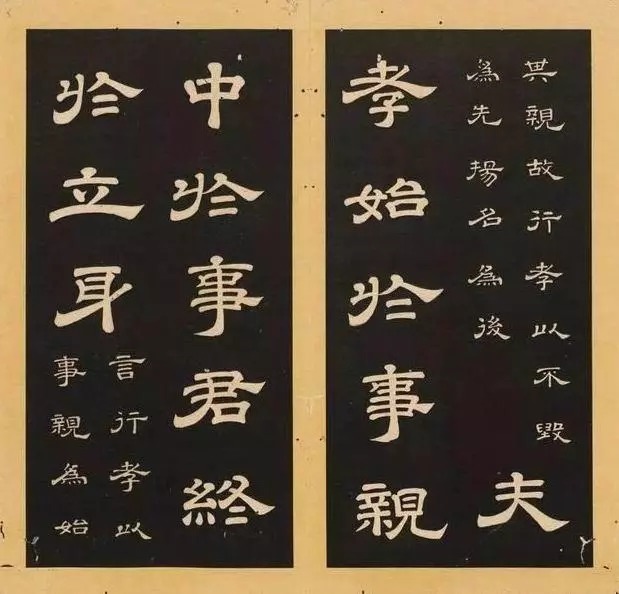 其親故行孝以不毀
為先揚名為後
夫
孝始於事親
中於事君終
於立身
言行孝以
事親為始